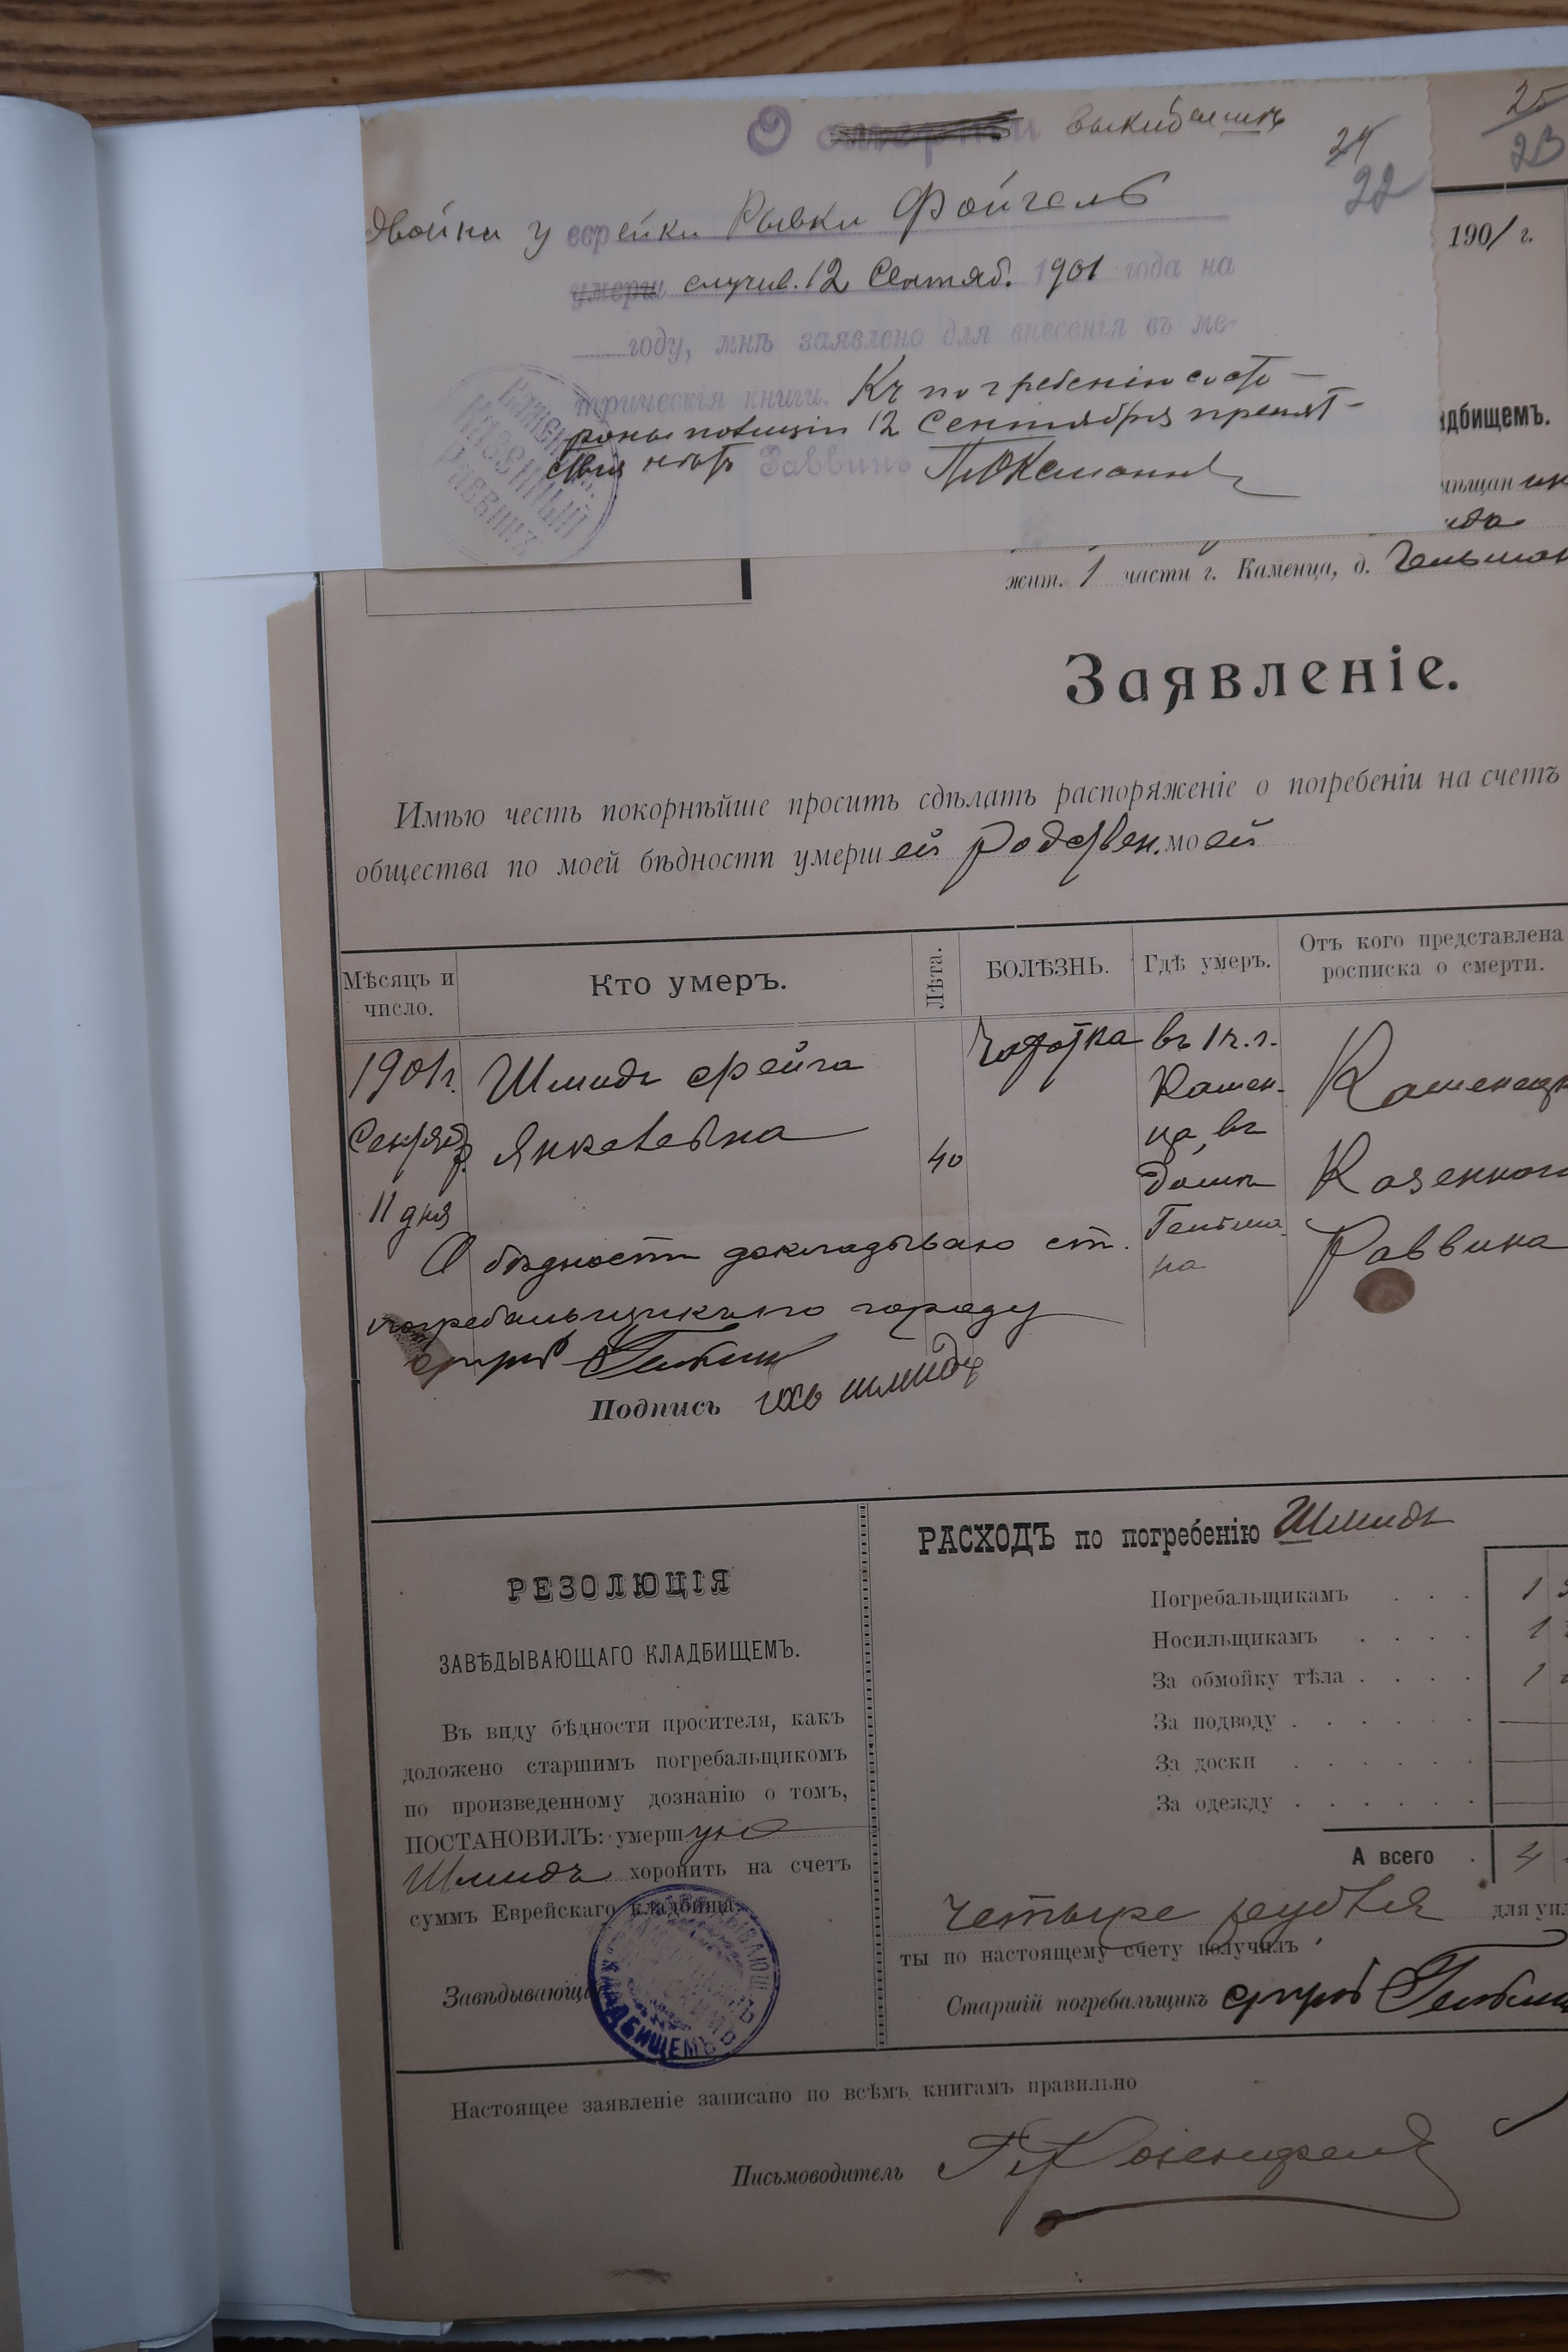 О смерти выкидыше 24 25
22 23
Двойни у еврейки Рывки Фойгель
умерш случив. 12 Сентяб. 1901 года на
году, мнѣ заявлено для внесенія въ ме-
трическія книги. Къ погребенію со сто-
роны полиціи 12 Сентября препят-
ствия нѣтъ Раввинъ
КАЗЕННЫЙ
РАВВИНЪ
1901 г.
дбищемъ.
мѣщан
жит. 1 части г. Каменца, д. Гельман
Заявленіе.
Имѣю честь покорнѣйше просить сдѣлать распоряженіе о погребеніи на счетъ
общества по моей бѣдности умершей родствен. моей
Мѣсяцъ и число. Кто умеръ. Лѣта. БОЛѢЗНЬ. Гдѣ умеръ. Отъ кого представлена росписка о смерти.
1901 г. Шмидъ Фейга Чахотка въ 1 ч. г. Каменецк
Сентяб. Янкелевна 40 Камен- Казенного
11 дня ца, въ Раввина
домѣ
Гельма-
на
О бѣдности докладываю ст.
погребальщикъ по городу
Подпись шмидъ
РЕЗОЛЮЦІЯ
ЗАВѢДЫВАЮЩАГО КЛАДБИЩЕМЪ.
Въ виду бѣдности просителя, какъ
доложено старшимъ погребальщикомъ
по произведенному дознанію о томъ,
ПОСТАНОВИЛЪ: умершую
Шмидъ хоронить на счетъ
суммъ Еврейскаго кладбища.
Завѣдывающій
РАСХОДЪ по погребенію Шмидъ
Погребальщикамъ . . . 1
Носильщикамъ . . . . 1
За обмойку тѣла . . . . 1
За подводу . . . . . .
За доски . . . . . .
За одежду . . . . . .
А всего . 4
Четыре рубля для упл
ты по настоящему счету получилъ
Старшій погребальщикъ
Настоящее заявленіе записано по всѣмъ книгамъ правильно
Письмоводитель